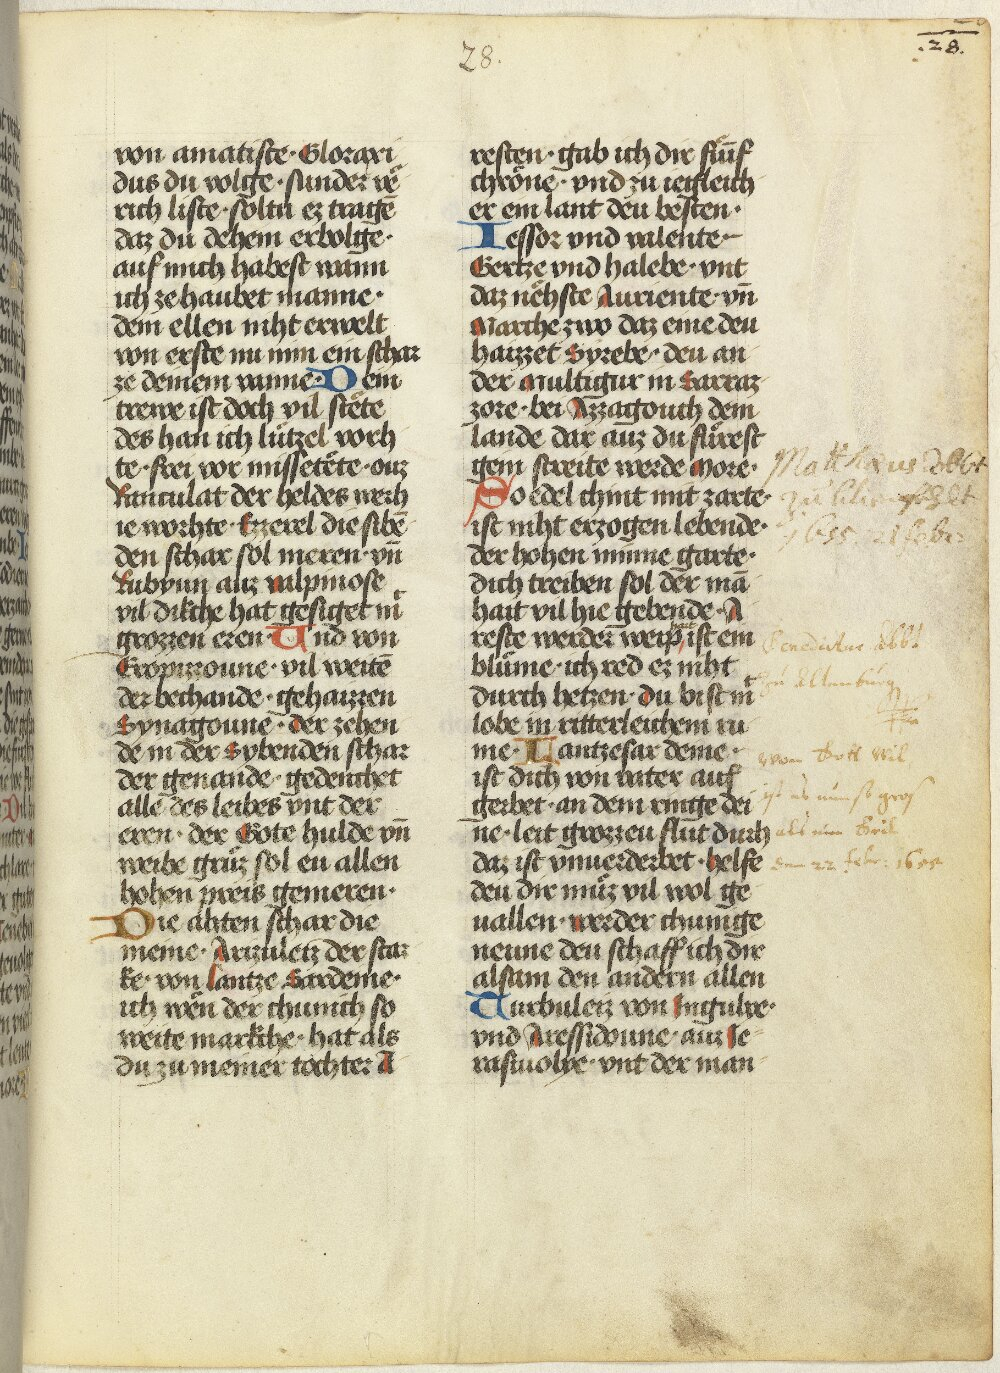 28.
28.
von amatiste · Gloraxi
dus du volge · sunder vë
rich liste · soltu ez tragē
daz du dehem erbolge ·
auf mich habest wann
ich ze haubet manne ·
dem ellen niht erwelt
von erste nu nim ein schar
ze deinem vanne · Dein
trewe ist doch vil stëte
des han ich lützel vorh
te · frei vor missetëte · ouz
Ranculat der heldes werh
ie worhte · Ezzerel die sibē
den schar sol meren · vn̄
Rubyun auz valpinose
vil dikche hat gesiget mit
grozzen eren · Und von
Gropizzoune · vil weitē
der bechande · gehaizzen
Synagoune · der zehen
de in der Sybenden schar
der genande · gedenchet
alle des leibes vnt der
eren · der Gote hulde vn̄
weibe grüz sol eu allen
hohen preis gemeren ·
Die ahten schar die
meine · Arizuleiz der star
ke · von lantze Sardeine ·
ich wën der chunich so
weite markche · hat als
du zu meiner tochter A
resten · gab ich dir fünf
chröne · vnd zu iegleich
er ein lant deu besten ·
Iessor vnd valente ·
Gertze vnd halebe · vnt
daz nëhste Auriente · vn̄
Marche zwo daz eine deu
haizzet Syrebe · deu an
der Multigur in Sarraz
zore · bei Azzagouch dem
lande dar auz du fürest
gein streite werde More ·
So edel chint mit zarte ·
ist niht erzogen lebende ·
der hohen minne garte ·
dich treiben sol der ma
hait vil hie gebende · A
reste werder weiphait ist ein
blüme · ich red ez niht
durch hetzen · du bist mit
lobe in ritterleichem rü
me · Lantzesardeine ·
ist dich von vater auf
gerbet · an dem ringe dei
ne · leit grozzeu flüt durh
daz ist vnuerderbet · helfe
deu dir müz vil wol ge
uallen · werder chunige
neune den schaff ich dir
alsam den andern allen
Turbuleiz von Ingulye ·
vnd Aressidoune · auz Je
rastuolye · vnt der man
Matthæus Abbt
zu Lilienfeldt
1655. 21 feber
Benedictus Abbt
zu Altenburg
Wann Gott wil
ist es
den 22 febr: 1655